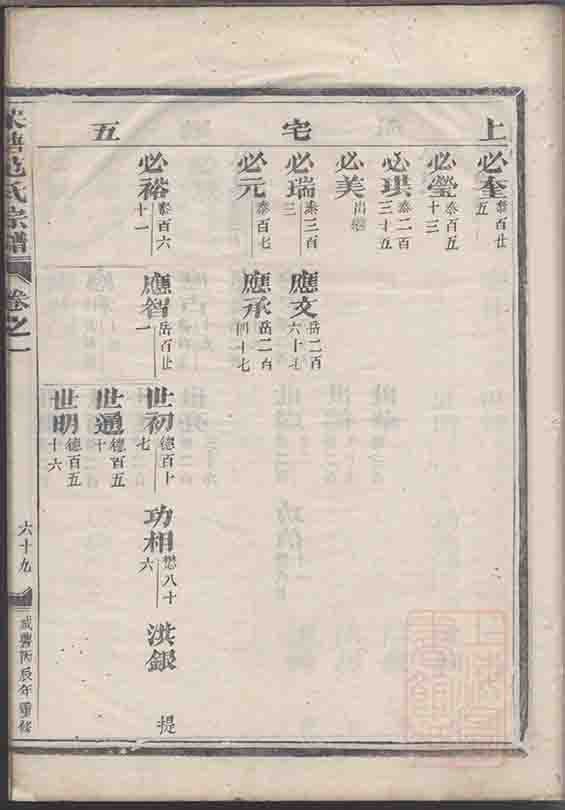 上宅五
必奎 泰百廿五
必瑩 泰百五十三
必琪 泰二百三十五
必美 出繼
必瑞 泰三百三 應文 岳二百六十七
必元 泰百七 應承 岳二百四十七
必裕 泰百六十一 應智 岳百廿一 世初 德百十七 功相 懋八十六 洪銀 提
世通 德百五十
世明 德百五十六
氏宗譜 卷之一 六十九 咸豐丙辰年重修